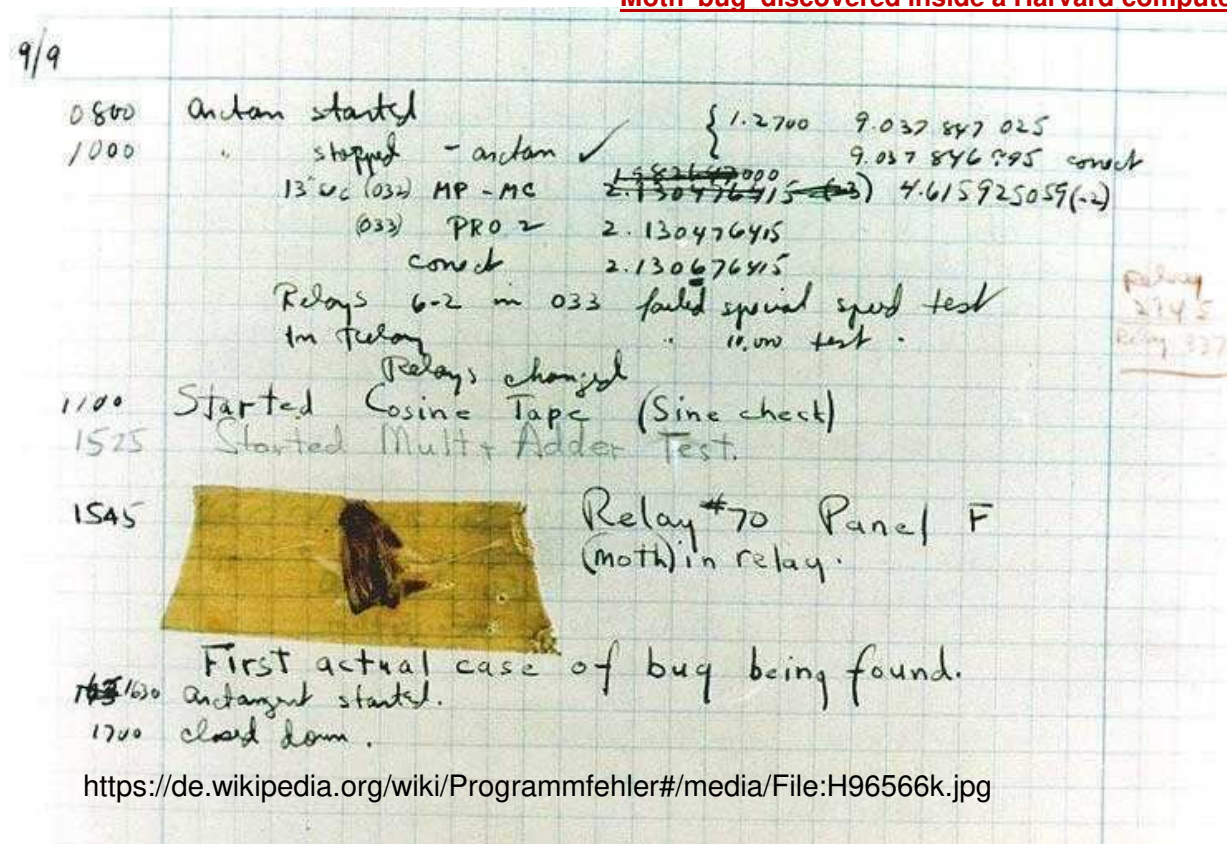 Moth 'bug' discovered inside a Harvard compute
9/9
0800 antan started { 1.2700 9.037 847 025
1000 " stopped - antan ✓ 9.037 846 995 conect
13"uc (032) MP - MC 1.982647000 2.130476415 (-3) 4.615925059(-2)
(033) PRO 2 2.130476415
conect 2.130676415
Relays 6-2 in 033 failed special speed test
In Relay " 10,000 test.
Relay
2145
Relay 337
Relays changed
1100 Started Cosine Tape (Sine check)
1525 Started Mult + Adder Test.
1545 Relay #70 Panel F
(moth) in relay.
First actual case of bug being found.
1630 antangent started.
1700 closed down.
https://de.wikipedia.org/wiki/Programmfehler#/media/File:H96566k.jpg